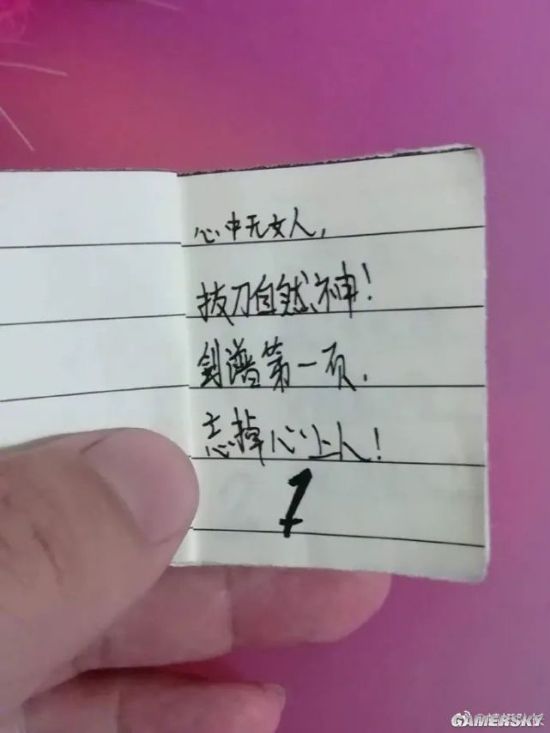 心中无女人，
拔刀自然神！
剑谱第一页，
忘掉心上人！
1
GAMERSKY